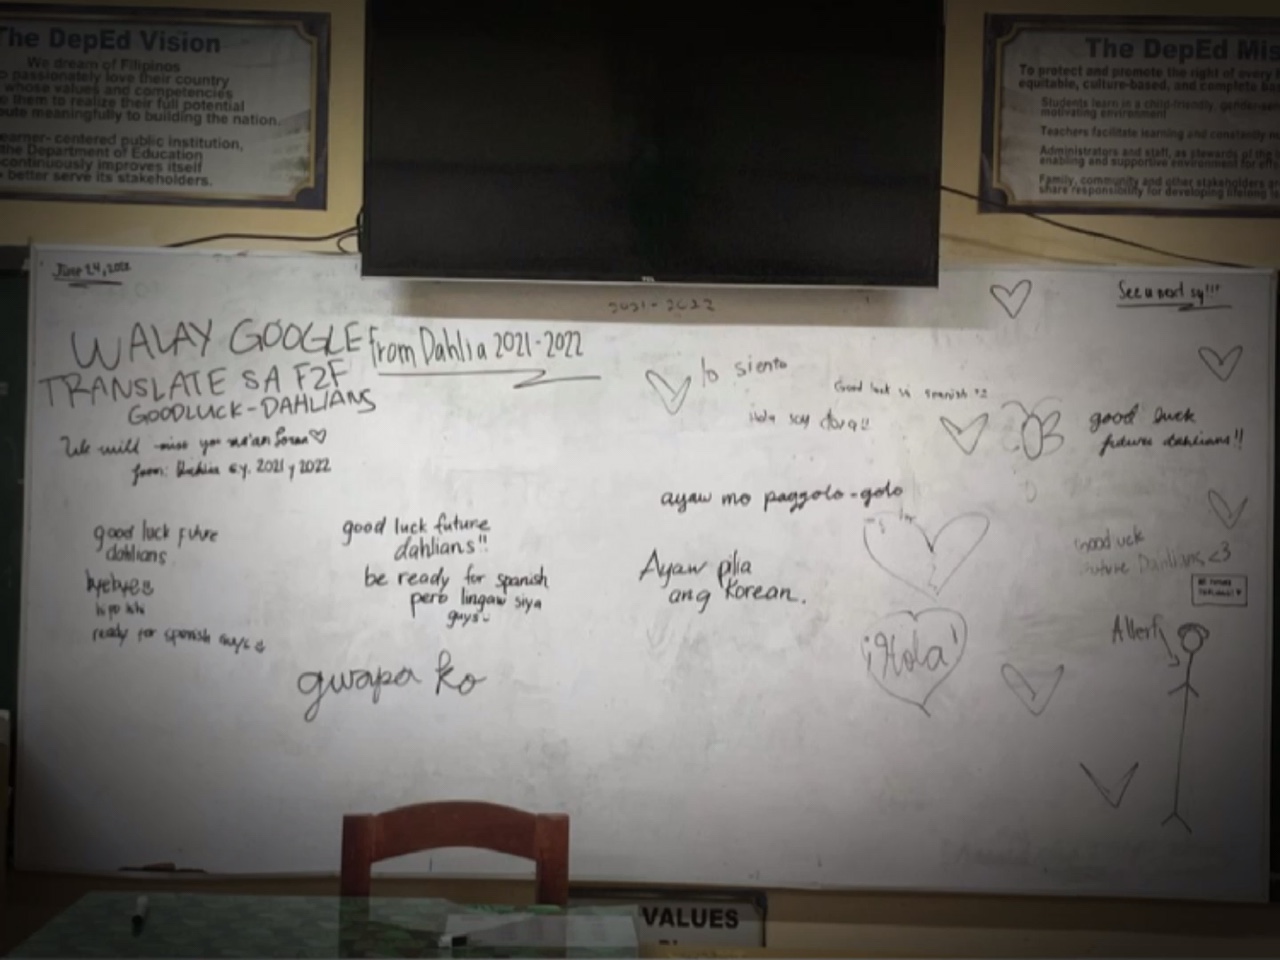 The DepEd Vision
We dream of Filipinos
passionately love their country
whose values and competencies
them to realize their full potential
meaningfully to building the nation.
centered public institution,
the Department of Education
continuously improves itself
better serve its stakeholders.
The DepEd
To protect and promote the right of every
equitable, culture-based, and complete
Students learn in a child-friendly,
motivating environment
Teachers facilitate learning and constantly
Administrators and staff, as stewards of the
enabling and supportive environment for
Family, community and other stakeholders
share responsibility for developing lifelong
June 24,
2021-2022
See u next sy!!!
WALAY GOOGLE
TRANSLATE SA F2F
GOODLUCK-DAHLIANS
from Dahlia 2021-2022
We will miss you ma'am
from: Dahlia s.y. 2021 y 2022
lo siento
Good luck sa spanish
Hola soy dora!!
good luck
future dahlians!!
ayaw mo paggolo-golo
good luck future
dahlians
byebyes
ready for spanish guys
good luck future
dahlians!!
be ready for spanish
pero lingaw siya
guys
Ayaw pilia
ang Korean.
Future Dahlians <3
¡Hola!
gwapa ko
VALUES